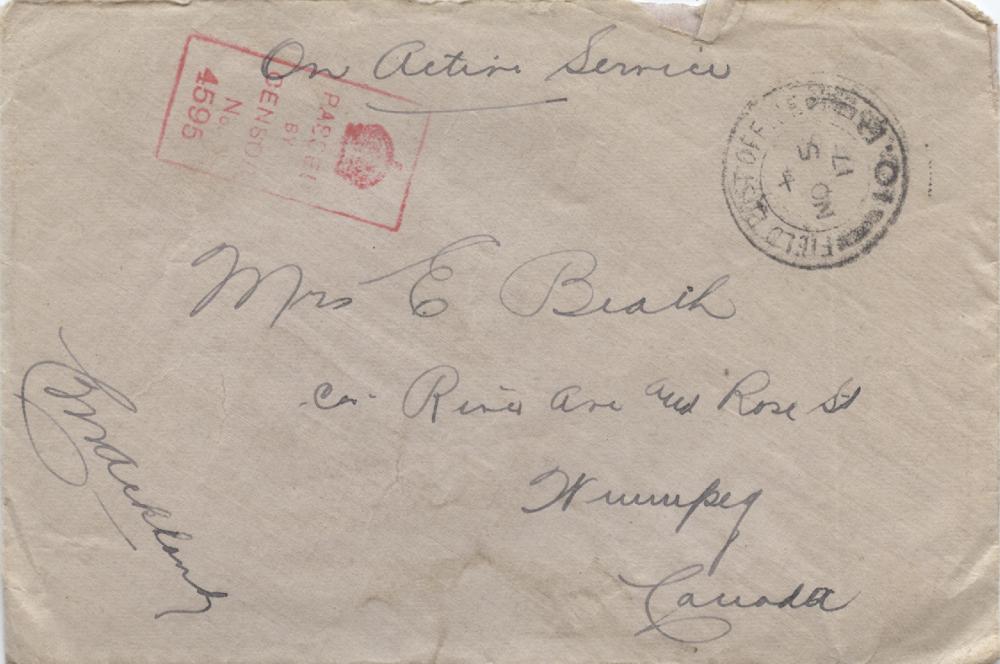 On Active Service
PASSED
BY
CENSOR
No.
4595
FIELD POST OFFICE
4
NO
17
Mrs E Beath
Cor. River Ave and Rose St
Winnipeg
Canada